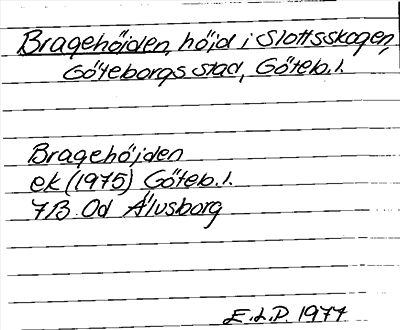 Bragehöjden, höjd i Slottsskogen,
Göteborgs stad, Göteb. l.
Bragehöjden
ek (1975) Göteb. l.
7B 0d Älvsborg
E.L.P. 1977